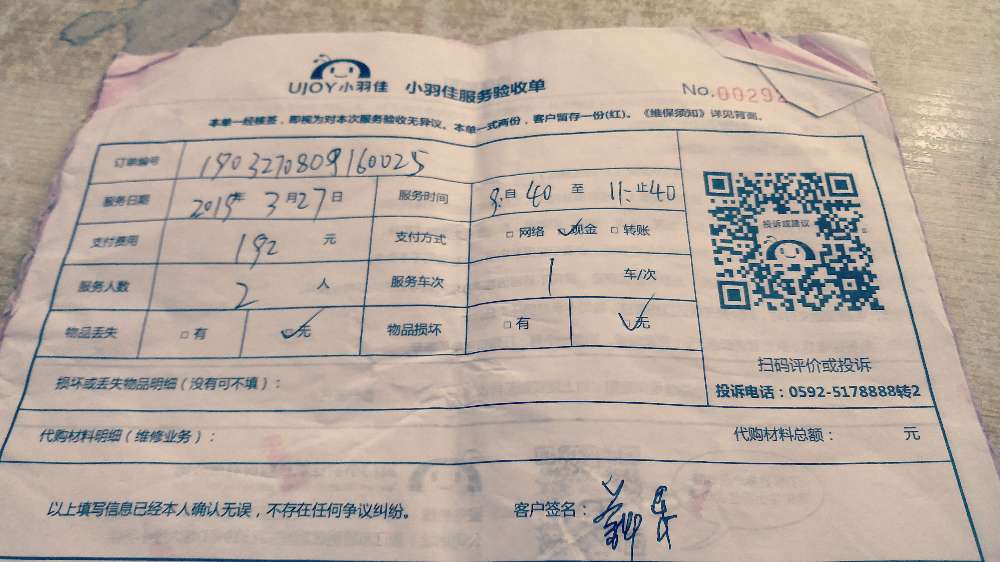 UJOY小羽佳 小羽佳服务验收单 No.00292
本单一经核签，即视为对本次服务验收无异议。本单一式两份，客户留存一份(红)。《维保须知》详见背面。
订单编号 1903270809160025
服务日期 2019年 3月27日 服务时间 9:自40 至 11:止40
支付费用 192 元 支付方式 □网络 ✓现金 □转账
投诉或建议
服务人数 2 人 服务车次 1 车/次
物品丢失 □有 ✓无 物品损坏 □有 ✓无
扫码评价或投诉
损坏或丢失物品明细（没有可不填）：
投诉电话：0592-5178888转2
代购材料明细（维修业务）： 代购材料总额： 元
以上填写信息已经本人确认无误，不存在任何争议纠纷。 客户签名：